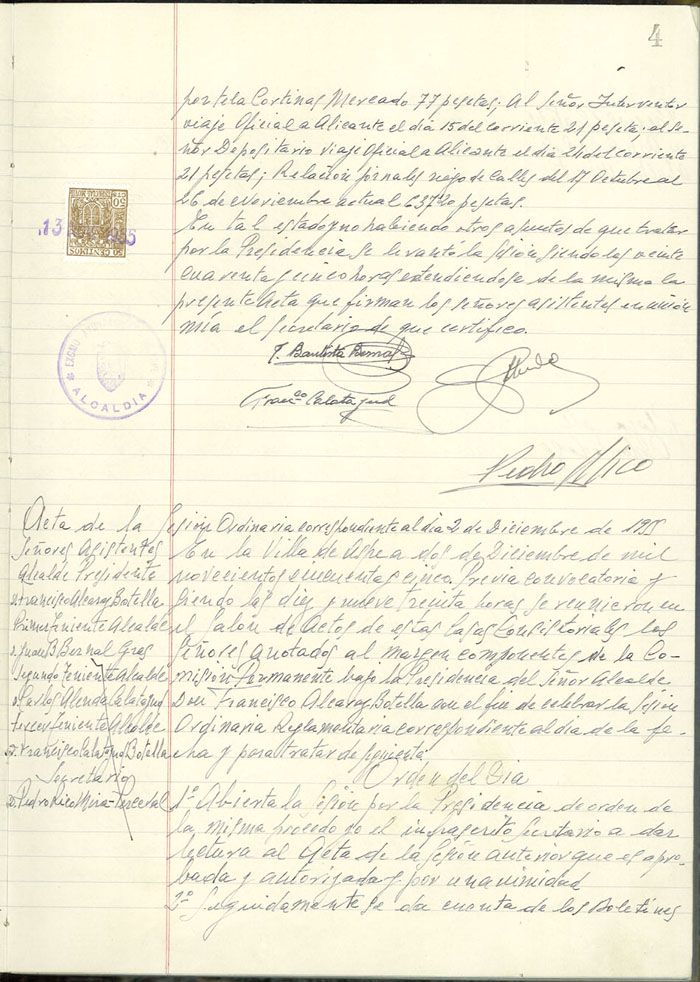 4
por tela Cortinas Mercado 77 pesetas; Al Señor Interventor
viaje Oficial a Alicante el dia 15 del corriente 21 pesetas; al Se-
ñor Depositario viaje Oficial a Alicante el dia 24 del corriente
21 pesetas; Relación jornales riego de Calles del 17 Octubre al
26 de Noviembre actual 637'20 pesetas.
En tal estado y no habiendo otros asuntos de que tratar
por la Presidencia se levantó la sesión siendo las veinte
cuarenta y cinco horas extendiendose de la misma la
presente Acta que firman los señores asistentes en unión
mía el Secretario de que certifico.
50 CENTIMOS
13 1955
ALCALDIA
J. Bautista Bernal
Franco Calatayud
Pedro Rico
Acta de la Sesión Ordinaria correspondiente al dia 2 de Diciembre de 1955
Señores Asistentes
Alcalde Presidente
D. Francisco Alcaraz Botella
Primer Teniente Alcalde
D. Juan B. Bernal Gras
Segundo Teniente Alcalde
D. Carlos Alenda Calatayud
Tercer Teniente Alcalde
D. Francisco Calatayud Botella
Secretario
D. Pedro Rico Mira-Perceval
En la Villa de Aspe a dos de Diciembre de mil
novecientos cincuenta y cinco. Previa convocatoria y
siendo las diez y nueve treinta horas se reunieron en
el Salón de Actos de estas Casas Consistoriales los
Señores anotados al margen componentes de la Co-
misión Permanente bajo la Presidencia del Señor Alcalde
Don Francisco Alcaraz Botella con el fin de celebrar la Sesión
Ordinaria Reglamentaria correspondiente al dia de la fe-
cha y para tratar de siguiente
Orden del Dia
1º Abierta la Sesión por la Presidencia de orden de
la misma procedo yo el infrascrito Secretario a dar
lectura al Acta de la Sesión anterior que es apro-
bada y autorizada por unanimidad
2º Seguidamente se da cuenta de los Boletines